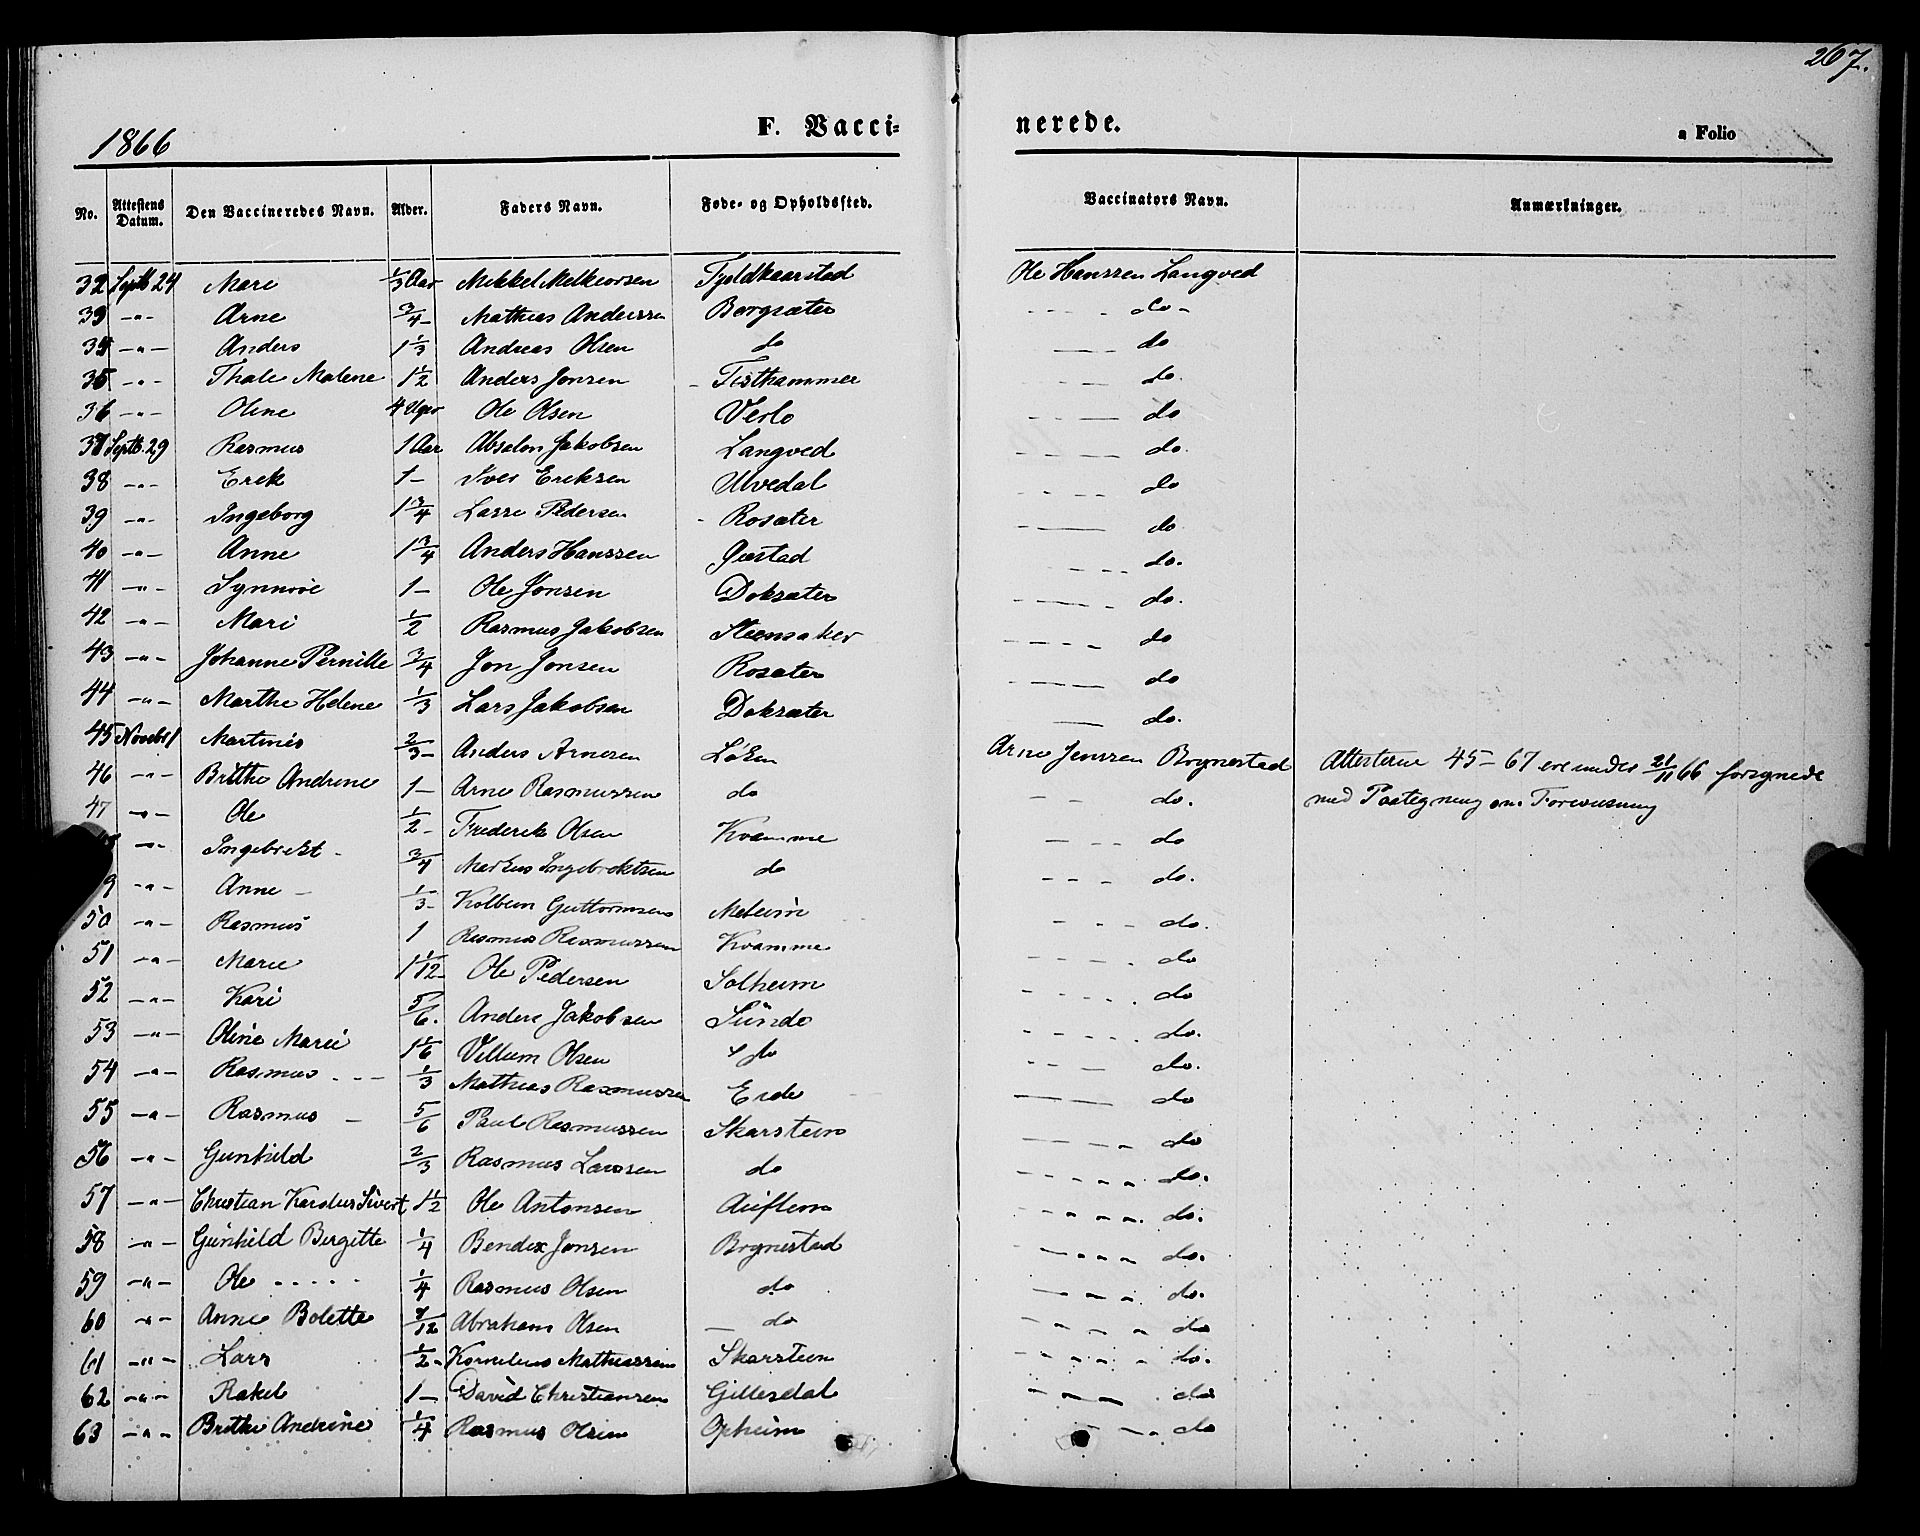 267.
1866
F. Vacci=
nerede.
a Folio
No. Attestens Datum. Den Vaccineredes Navn. Alder. Faders Navn. Føde- og Opholdssted. Vaccinators Navn. Anmærkninger.
32 Septb 24 Mari 1/3 Aar Mikkel Melkiorsen Fjeldkaarstad Ole Hanssen Langved
33 -"- Arne 3/4 - Mathias Anderssen Borgsæter - - - - do -
34 -"- Anders 1 1/3 Andreas Olsen do do
35 -"- Thale Malene 1 1/2 Anders Jonsen - Tisthammer do.
36 -"- Oline 4 Uger Ole Olsen Verlo do
37 Septb. 29 Rasmus 1 Aar Absalon Jakobsen Langved do.
38 -"- Erek 1 - Iver Ereksen Ulvedal do
39 -"- Ingeborg 1 3/4 Lasse Pedersen - Rosæter do
40 -"- Anne 1 3/4 Anders Hanssen Gjestad do.
41 -"- Synnøve 1 - Ole Jonsen Doksæter do.
42 -"- Mari 1/2 Rasmus Jakobsen Steensaker do
43 -"- Johanne Pernille 3/4 Jon Jonsen Rosæter do
44 -"- Marthe Helene 1/3 Lars Jakobsen Doksæter do.
45 Novebr 1 Martines 2/3 - Anders Arnesen Løken Arne Jenssen Brynestad Attesterne 45-67 ere under 21/11 66 forsynede
46 -"- Brithe Andrine 1 - Arne Rasmussen do do. med Paategning om Forevisning
47 -"- Ole 1/2 - Frederik Olsen Kvamme do
-"- Ingebrekt - 3/4 Markus Ingebrektsen do do.
9 -"- Anne - 1/3 - Kolbein Guttormsen Meheim do.
50 -"- Rasmus 1 Rasmus Rasmussen Kvamme do
51 -"- Marie 1 1/12 - Ole Pedersen Solheim do
52 -"- Kari 5/6. Anders Jakobsen Sunde do.
53 -"- Oline Marie 1 1/6 Villum Olsen do do.
54 -"- Rasmus - - - 1/3 Mathias Rasmussen Eide do
55 -"- Rasmus - 5/6 Paul Rasmussen Skarstein do
56 -"- Gunhild 2/3 Rasmus Larssen do do.
57 -"- Christian Karolus Sivert 1 1/2 Ole Antonsen Auflem do.
58 -"- Gunhild Birgitte 1/4 Bendix Jonsen Brynestad do.
59 -"- Ole - - - - - 1/4 Rasmus Olsen do do.
60 -"- Anne Bolette 7/12 Abraham Olsen - do do
61 -"- Lars 1/2 - Kornelius Mathiassen Skarstein do.
62 -"- Rakel 1 - David Christiansen Gillesdal do
63 -"- Brithe Andrine 1/4 Rasmus Olsen Opheim do